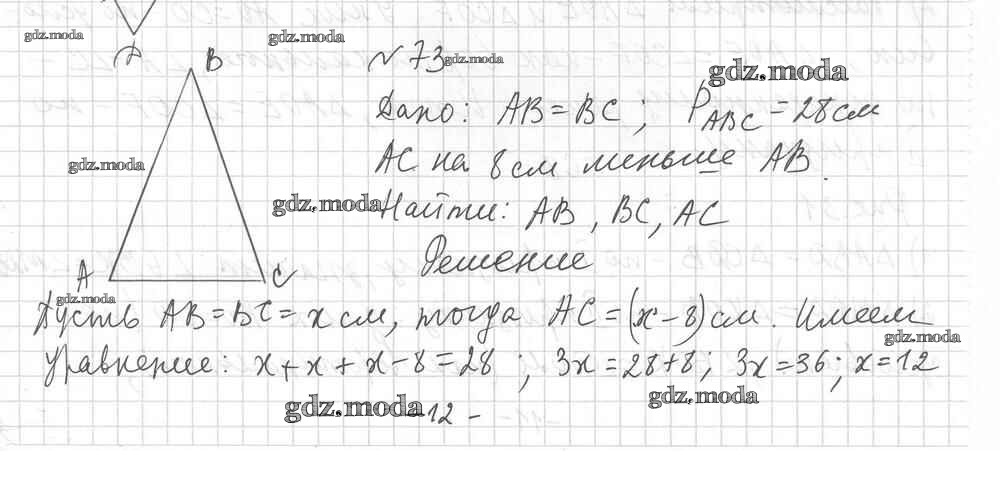 gdz.moda
gdz.moda
B
№ 73 gdz.moda
gdz.moda
Дано: AB = BC; P ABC = 28 см
AC на 8 см меньше AB.
gdz.moda
gdz.moda
Найти: AB, BC, AC
Решение
A
C
gdz.moda
Пусть AB = BC = x см, тогда AC = (x - 8) см. Имеем
gdz.moda
уравнение: x + x + x - 8 = 28 ; 3x = 28 + 8; 3x = 36; x = 12
gdz.moda
gdz.moda 12 -